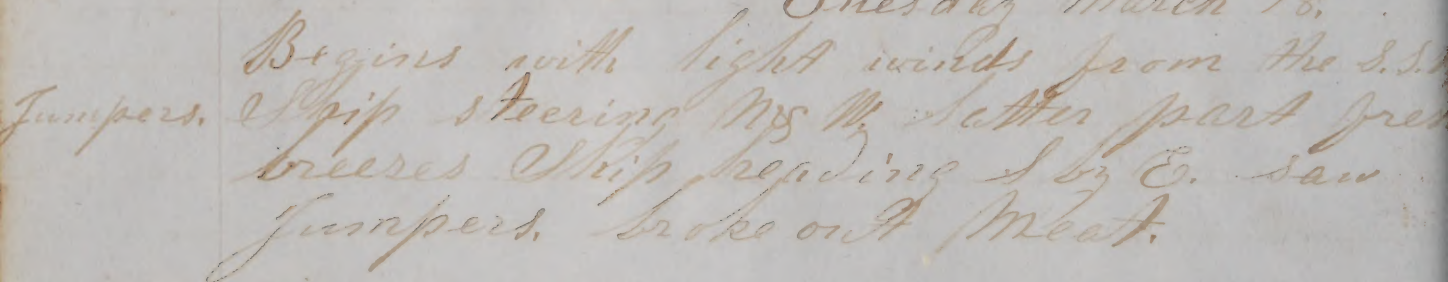 Tuesday March 18.
Begins with light winds from the S.S.
Jumpers. Ship steering latter part
breezes Ship heading S by E. saw
Jumpers. broke out Meat.